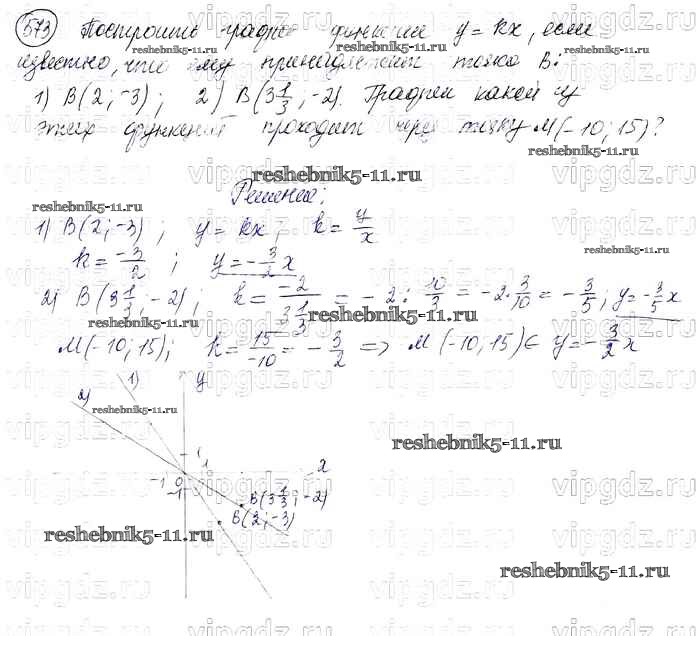 573 Построить график функции y = kx, если
известно, что ему принадлежит точка B:
1) B(2; -3); 2) B(3 1/3; -2). График какой из
этих функций проходит через точку M(-10; 15)?
Решение:
1) B(2; -3); y = kx; k = y/x
k = -3/2; y = -3/2 x
2) B(3 1/3; -2); k = -2/(3 1/3) = -2 : 10/3 = -2 · 3/10 = -3/5; y = -3/5 x
M(-10; 15); k = 15/-10 = -3/2 => M(-10; 15) ∈ y = -3/2 x
2) 1) y
1
1
x
-1 0
-1
B(3 1/3; -2)
B(2; -3)
reshebnik5-11.ru
reshebnik5-11.ru
reshebnik5-11.ru
reshebnik5-11.ru
reshebnik5-11.ru
reshebnik5-11.ru
reshebnik5-11.ru
reshebnik5-11.ru
reshebnik5-11.ru
reshebnik5-11.ru
reshebnik5-11.ru
vipgdz.ru